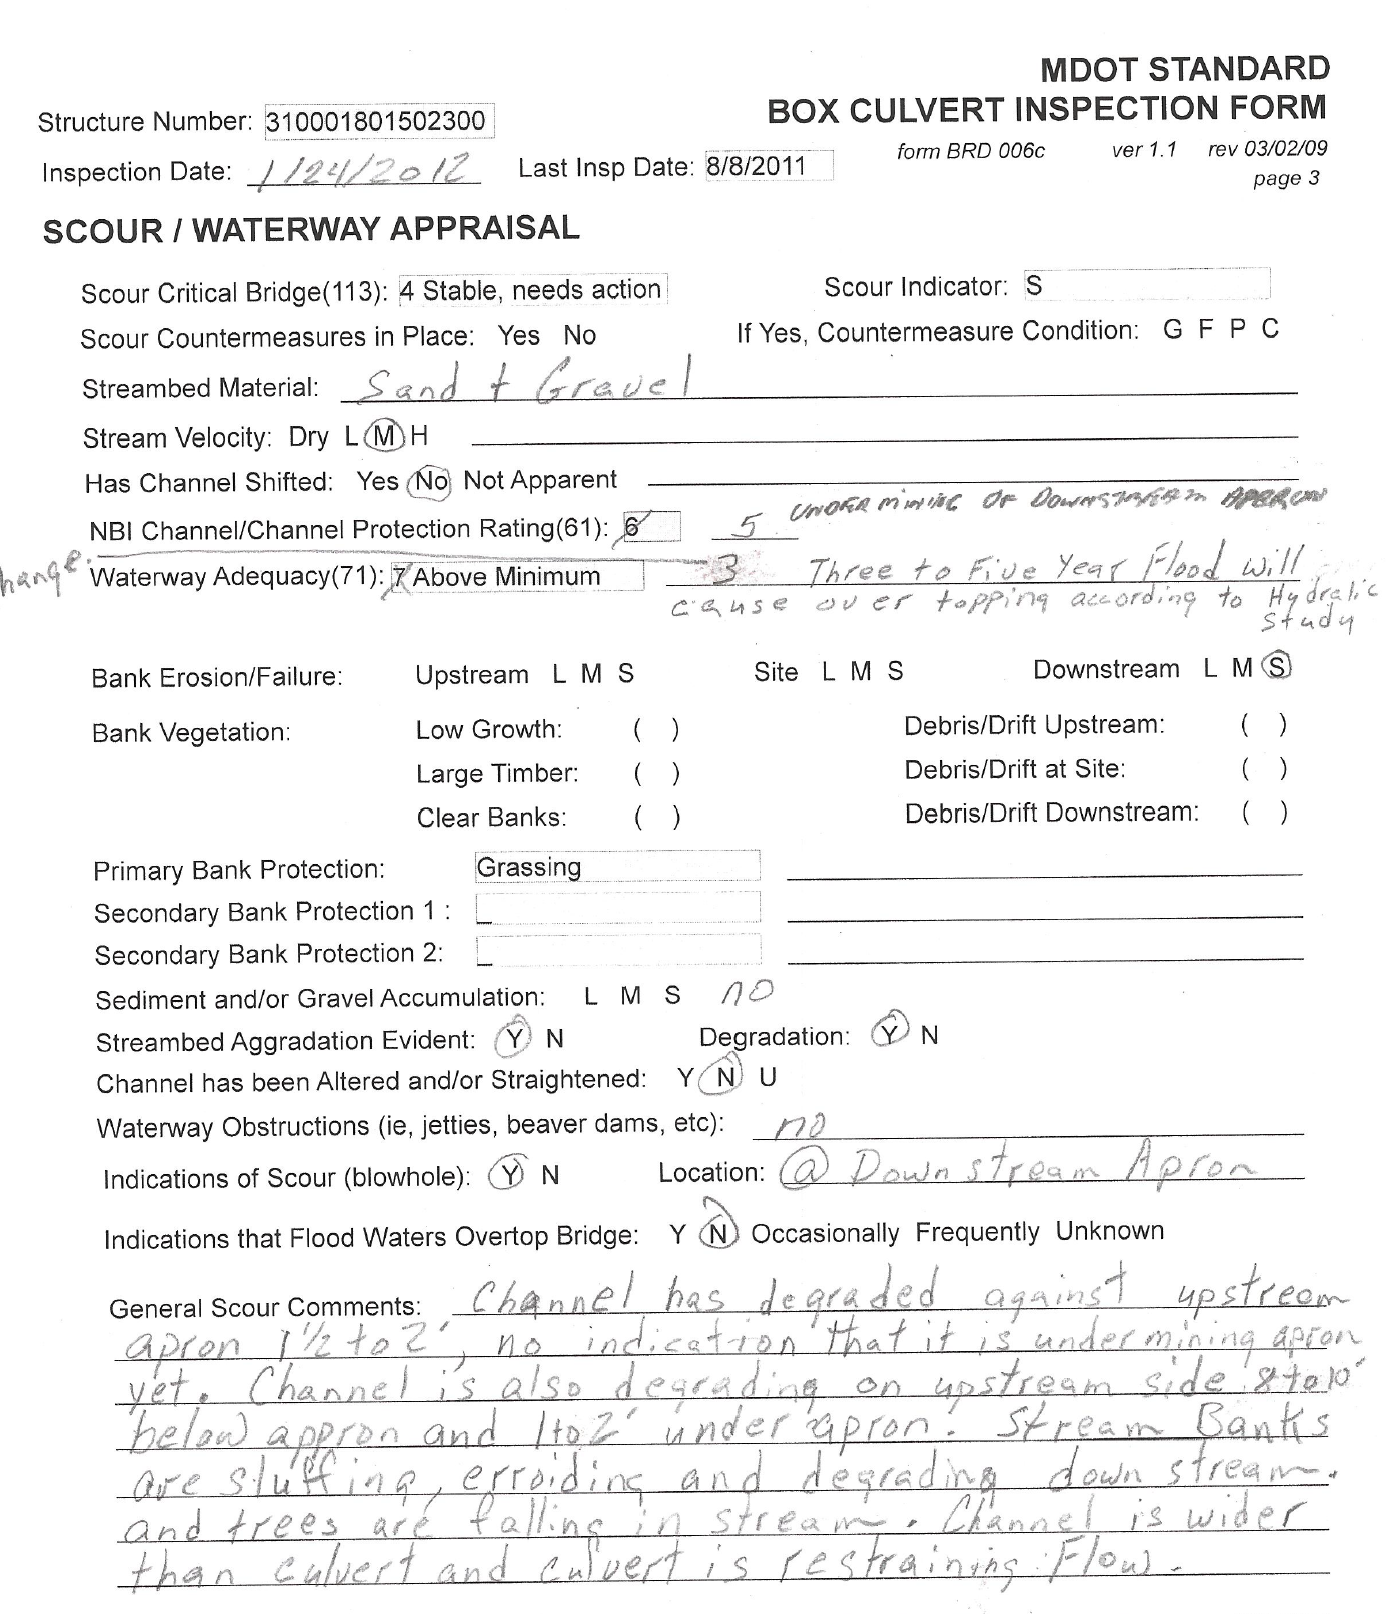 MDOT STANDARD
BOX CULVERT INSPECTION FORM
Structure Number: 310001801502300
form BRD 006c ver 1.1 rev 03/02/09
Inspection Date: 1/24/2012 Last Insp Date: 8/8/2011
page 3
SCOUR / WATERWAY APPRAISAL
Scour Critical Bridge(113): 4 Stable, needs action Scour Indicator: S
Scour Countermeasures in Place: Yes No If Yes, Countermeasure Condition: G F P C
Streambed Material: Sand + Gravel
Stream Velocity: Dry L M H
Has Channel Shifted: Yes No Not Apparent
UNDERMINING OF DOWNSTREAM APERON
NBI Channel/Channel Protection Rating(61): 6 5
hange. Waterway Adequacy(71): 7 Above Minimum 3 Three to Five Year Flood will
cause over topping according to Hydralic
Study
Bank Erosion/Failure: Upstream L M S Site L M S Downstream L M S
Bank Vegetation: Low Growth: ( ) Debris/Drift Upstream: ( )
Large Timber: ( ) Debris/Drift at Site: ( )
Clear Banks: ( ) Debris/Drift Downstream: ( )
Primary Bank Protection: Grassing
Secondary Bank Protection 1 : _
Secondary Bank Protection 2: _
Sediment and/or Gravel Accumulation: L M S no
Streambed Aggradation Evident: Y N Degradation: Y N
Channel has been Altered and/or Straightened: Y N U
Waterway Obstructions (ie, jetties, beaver dams, etc): no
Indications of Scour (blowhole): Y N Location: @ Down stream Apron
Indications that Flood Waters Overtop Bridge: Y N Occasionally Frequently Unknown
General Scour Comments: Channel has degraded against upstream
apron 1 1/2 to 2', no indication that it is undermining apron
yet. Channel is also degrading on upstream side 8 to 10'
below appron and 1 to 2' under apron. Stream Banks
are sluffing, erroiding and degrading down stream.
and trees are falling in stream. Channel is wider
than culvert and culvert is restraining Flow.